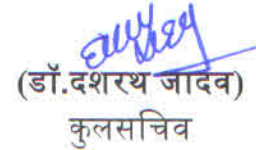 (डॉ.दशरथ जादव)
कुलसचिव